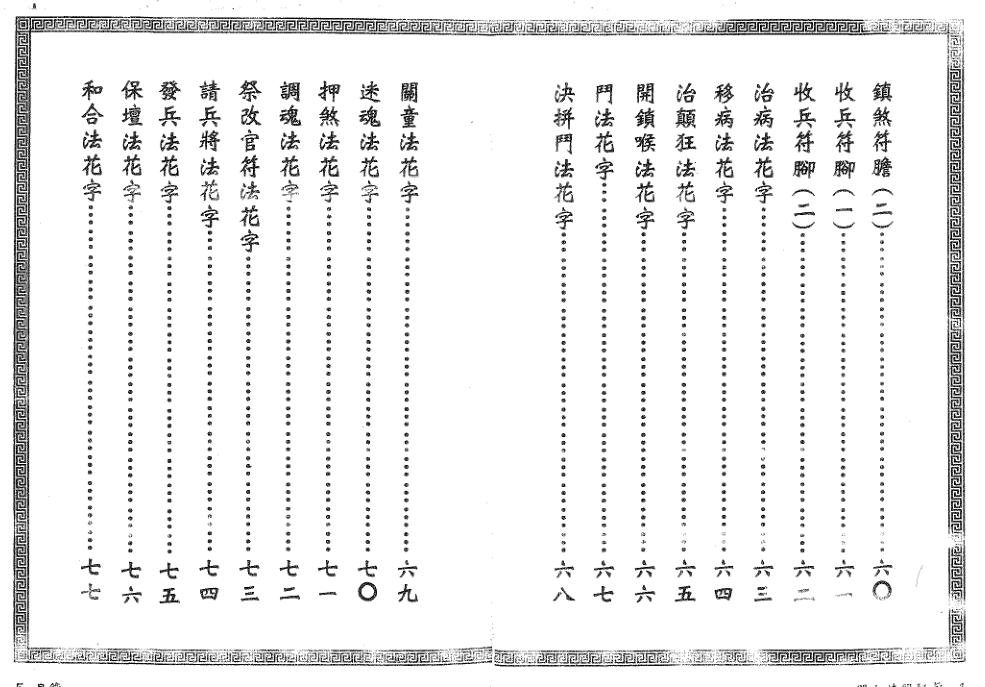 鎮煞符膽(二)……六〇
收兵符腳(一)……六一
收兵符腳(二)……六二
治病法花字……六三
移病法花字……六四
治顛狂法花字……六五
開鎖喉法花字……六六
鬥法花字……六七
決拼鬥法花字……六八
關童法花字……六九
迷魂法花字……七〇
押煞法花字……七一
調魂法花字……七二
祭改官符法花字……七三
請兵將法花字……七四
發兵法花字……七五
保壇法花字……七六
和合法花字……七七